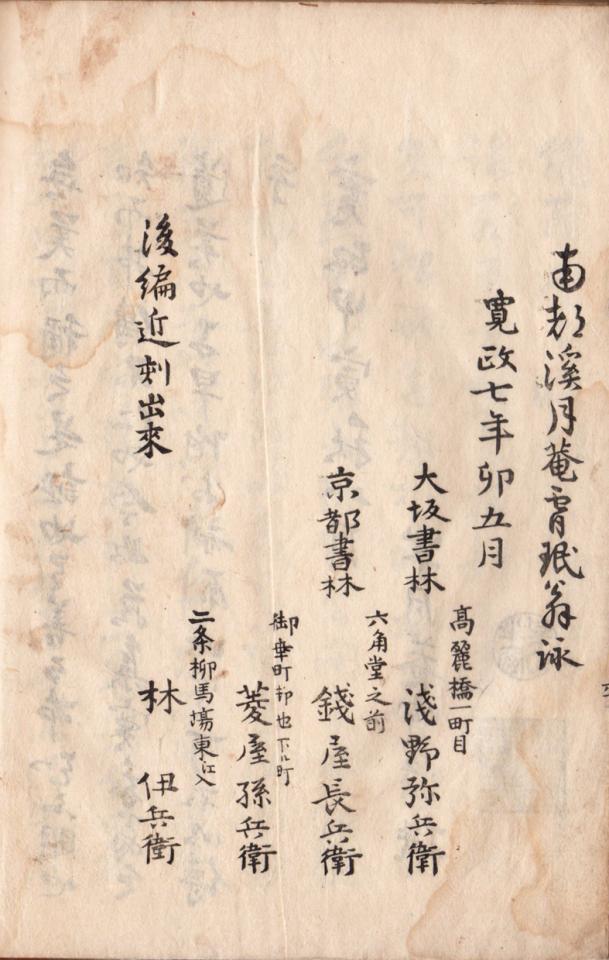 南都溪月菴霄珉翁詠
寛政七年卯五月
大坂書林
高麗橋一町目
浅野弥兵衛
京都書林
六角堂之前
錢屋長兵衛
御幸町
下ル町
菱屋孫兵衛
二条柳馬場東江入
林 伊兵衛
後編近刻出來